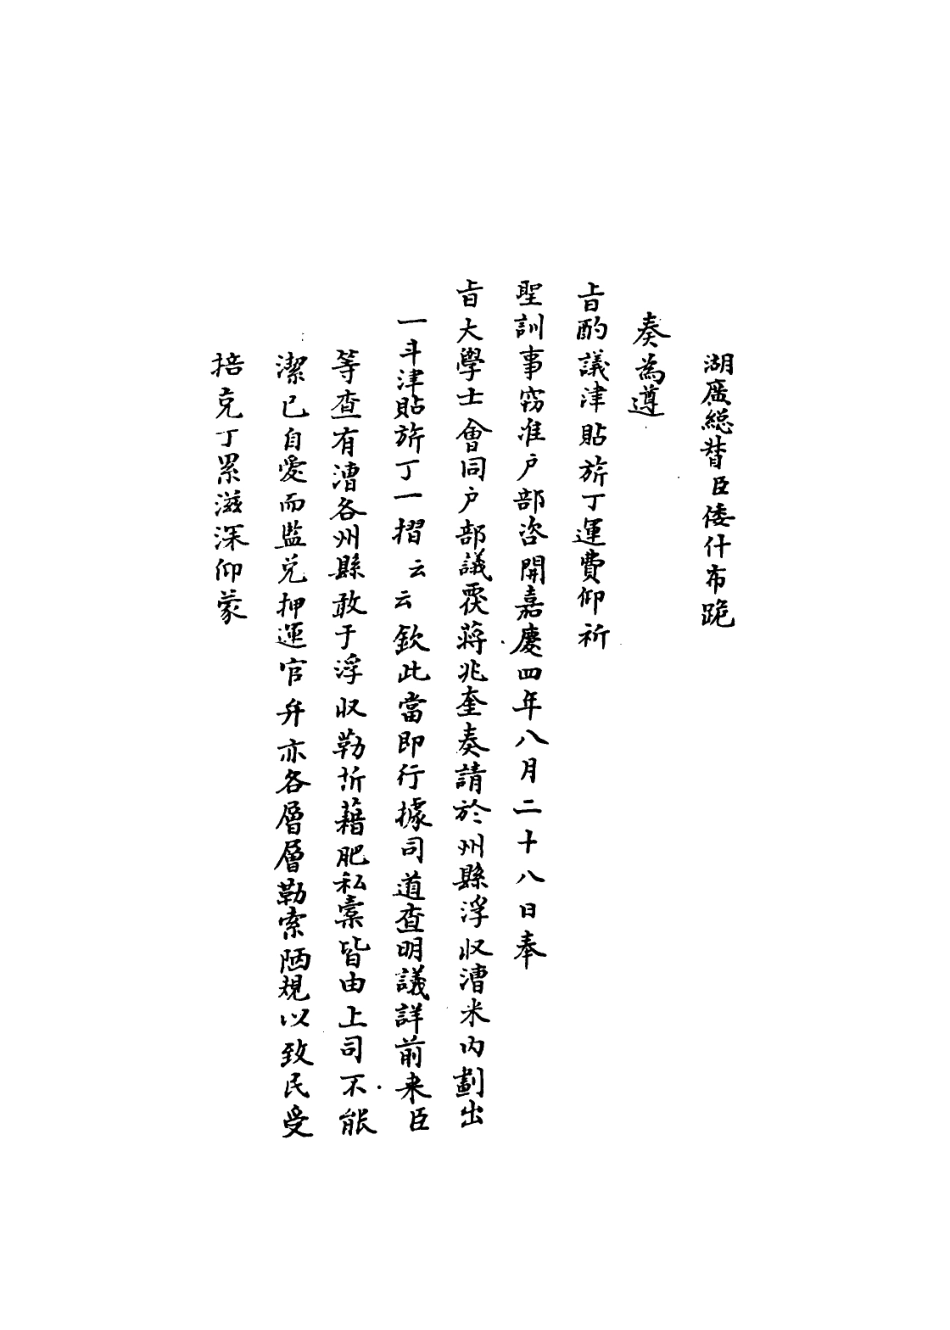 湖廣総督臣倭什布跪
奏為遵
旨酌議津貼旂丁運費仰祈
聖訓事窃准户部咨開嘉慶四年八月二十八日奉
旨大學士會同户部議覆蔣兆奎奏請於州縣浮収漕米内劃出
一斗津貼旂丁一摺云云欽此當即行據司道查明議詳前来臣
等查有漕各州縣敢于浮収勒折藉肥私橐皆由上司不能
潔已自愛而監兑押運官弁亦各層層勒索陋規以致民受
掊克丁累滋深仰蒙